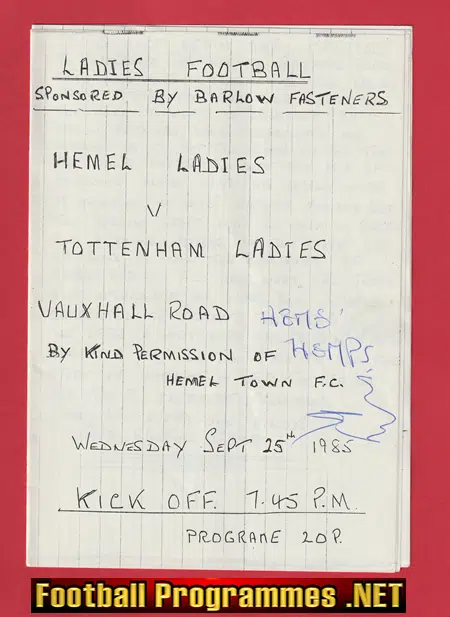 LADIES FOOTBALL
SPONSORED BY BARLOW FASTENERS
HEMEL LADIES
V
TOTTENHAM LADIES
VAUXHALL ROAD HEMS'
BY KIND PERMISSION OF HEMPS
HEMEL TOWN F.C.
WEDNESDAY SEPT 25TH 1985
KICK OFF. 7.45 P.M.
PROGRAME 20P.
Football Programmes .NET